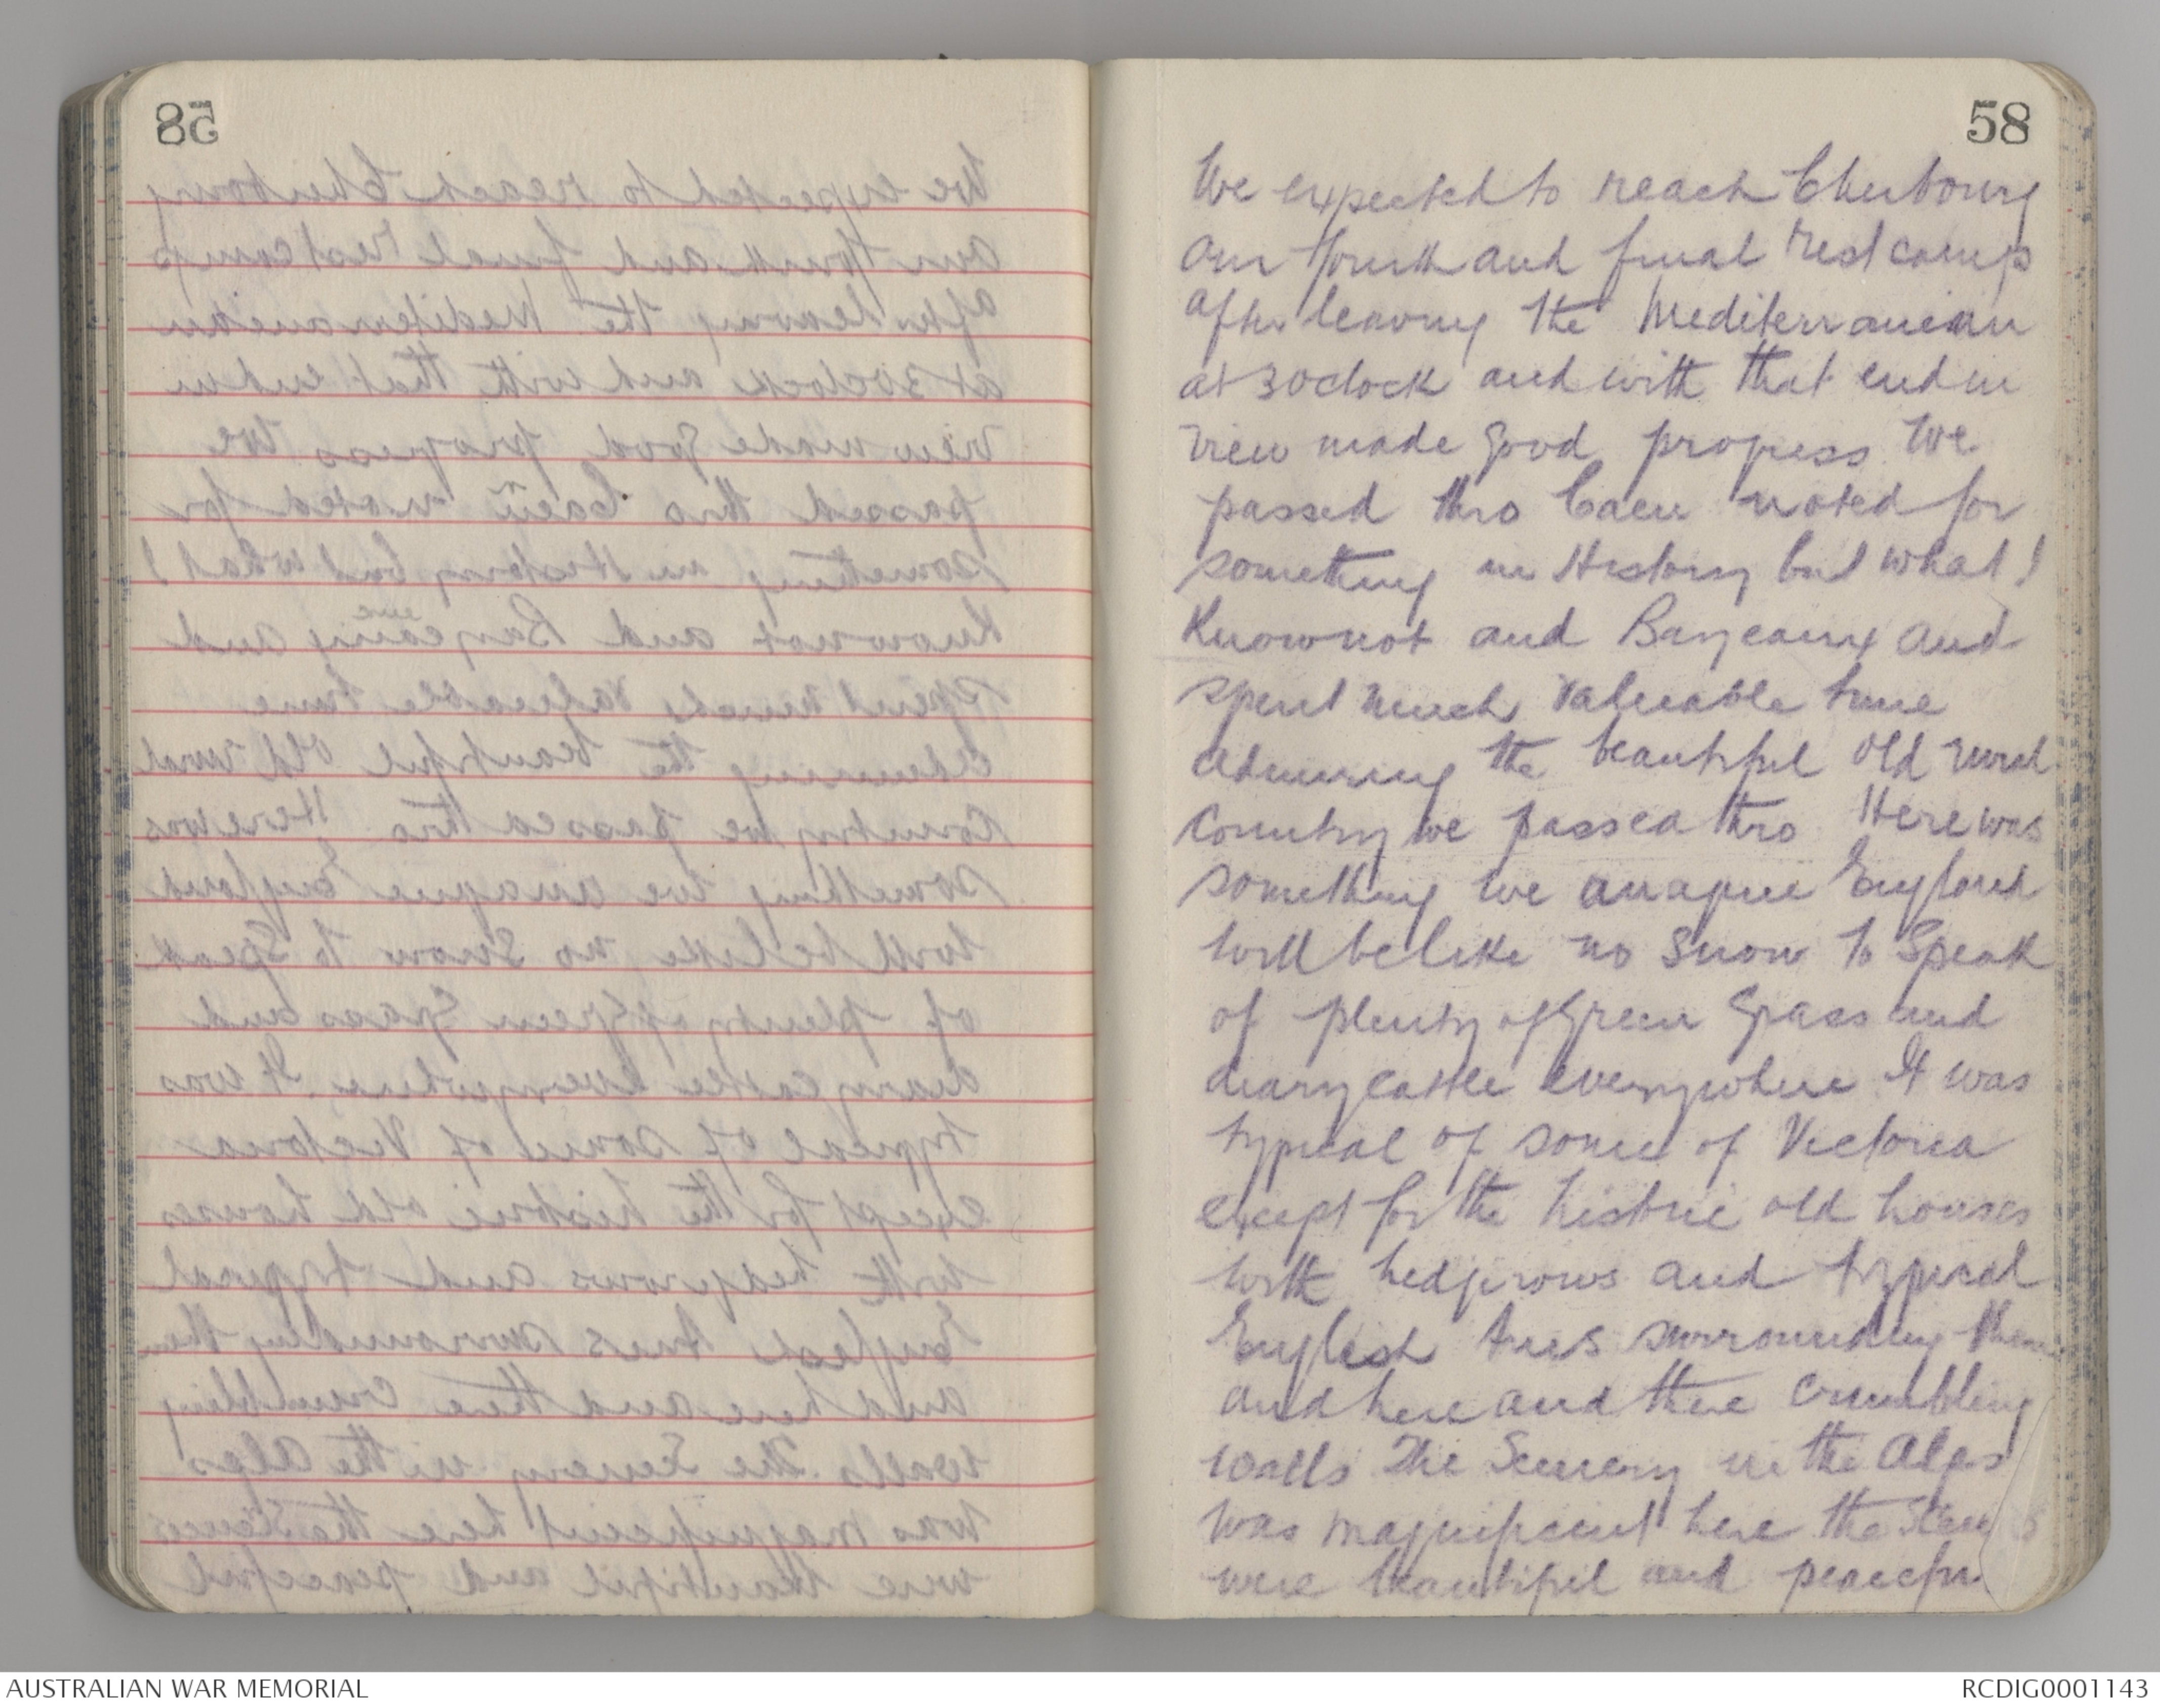 58
We expected to reach Cherbourg
our fourth and final rest camp
after leaving the Mediterranean
at 3 oclock and with that end in
view made good progress We
passed thro Caen noted for
something in History but what I
Know not and Bayeaux and
spent much valuable time
admiring the beautiful old rural
country we passed thro Here was
something we imagine England
will be like no snow to speak
of plenty of Green Grass and
diary cattle everywhere It was
typical of some of Victoria
except for the historic old houses
with hedgrows and typical
English trees surrounding them
and here and there crumbling
walls The Scenery in the Alps
was magnificent here the Scenes
were beautiful and peaceful
AUSTRALIAN WAR MEMORIAL
RCDIG0001143